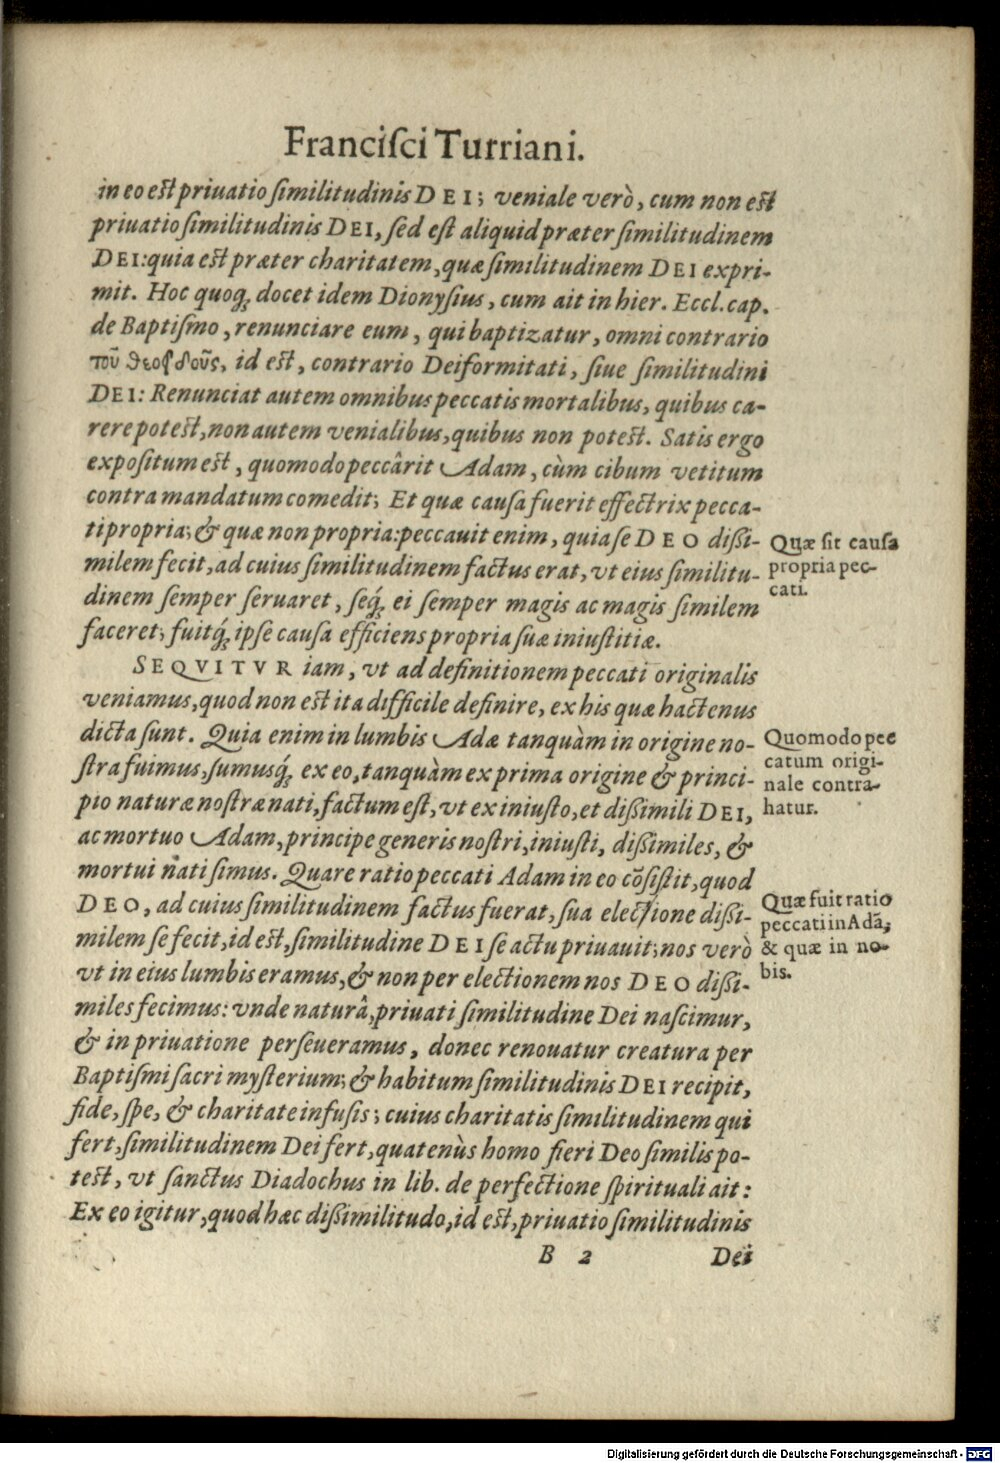 Franciſci Turriani.
in eo est priuatio ſimilitudinis DEI; veniale verò, cum non est
priuatio ſimilitudinis DEI, ſed eſt aliquid præter ſimilitudinem
DEI: quia est præter charitatem, quæ ſimilitudinem DEI expri-
mit. Hoc quoq; docet idem Dionyſius, cum ait in hier. Eccl. cap.
de Baptiſmo, renunciare eum, qui baptizatur, omni contrario
τοῦ θεοειδοῦς, id est, contrario Deiformitati, ſiue ſimilitudini
DEI: Renunciat autem omnibus peccatis mortalibus, quibus ca-
rere potest, non autem venialibus, quibus non potest. Satis ergo
expoſitum est, quomodo peccârit Adam, cùm cibum vetitum
contra mandatum comedit; Et quæ cauſa fuerit effectrix pecca-
ti propria; & quæ non propria: peccauit enim, quia ſe DEO dißi-
milem fecit, ad cuius ſimilitudinem factus erat, vt eius ſimilitu-
dinem ſemper ſeruaret, ſeq́; ei ſemper magis ac magis ſimilem
faceret; fuitq́; ipſe cauſa efficiens propria ſuæ iniuſtitiæ.
Quæ ſit cauſa
propria pec-
cati.
SEQVITVR iam, vt ad definitionem peccati originalis
veniamus, quod non est ita difficile definire, ex his quæ hactenus
dicta ſunt. Quia enim in lumbis Adæ tanquàm in origine no-
ſtra fuimus, ſumusq́; ex eo, tanquàm ex prima origine & princi-
pio naturæ noſtræ nati, factum eſt, vt ex iniuſto, et dißimili DEI,
ac mortuo Adam, principe generis noſtri, iniuſti, dißimiles, &
mortui nati ſimus. Quare ratio peccati Adam in eo cõſiſtit, quod
DEO, ad cuius ſimilitudinem factus fuerat, ſua electione dißi-
milem ſe fecit, id eſt, ſimilitudine DEI ſe actu priuauit; nos verò
vt in eius lumbis eramus, & non per electionem nos DEO dißi-
miles fecimus: vnde naturâ, priuati ſimilitudine Dei naſcimur,
& in priuatione perſeueramus, donec renouatur creatura per
Baptiſmi ſacri myſterium; & habitum ſimilitudinis DEI recipit,
fide, ſpe, & charitate infuſis; cuius charitatis ſimilitudinem qui
fert, ſimilitudinem Dei fert, quatenùs homo fieri Deo ſimilis po-
test, vt ſanctus Diadochus in lib. de perfectione ſpirituali ait:
Ex eo igitur, quod hæc dißimilitudo, id est, priuatio ſimilitudinis
Quomodo pec
catum origi-
nale contra-
hatur.
Quæ fuit ratio
peccati in Adã,
& quæ in no-
bis.
B 2 Dei
Digitalisierung gefördert durch die Deutsche Forschungsgemeinschaft - DFG